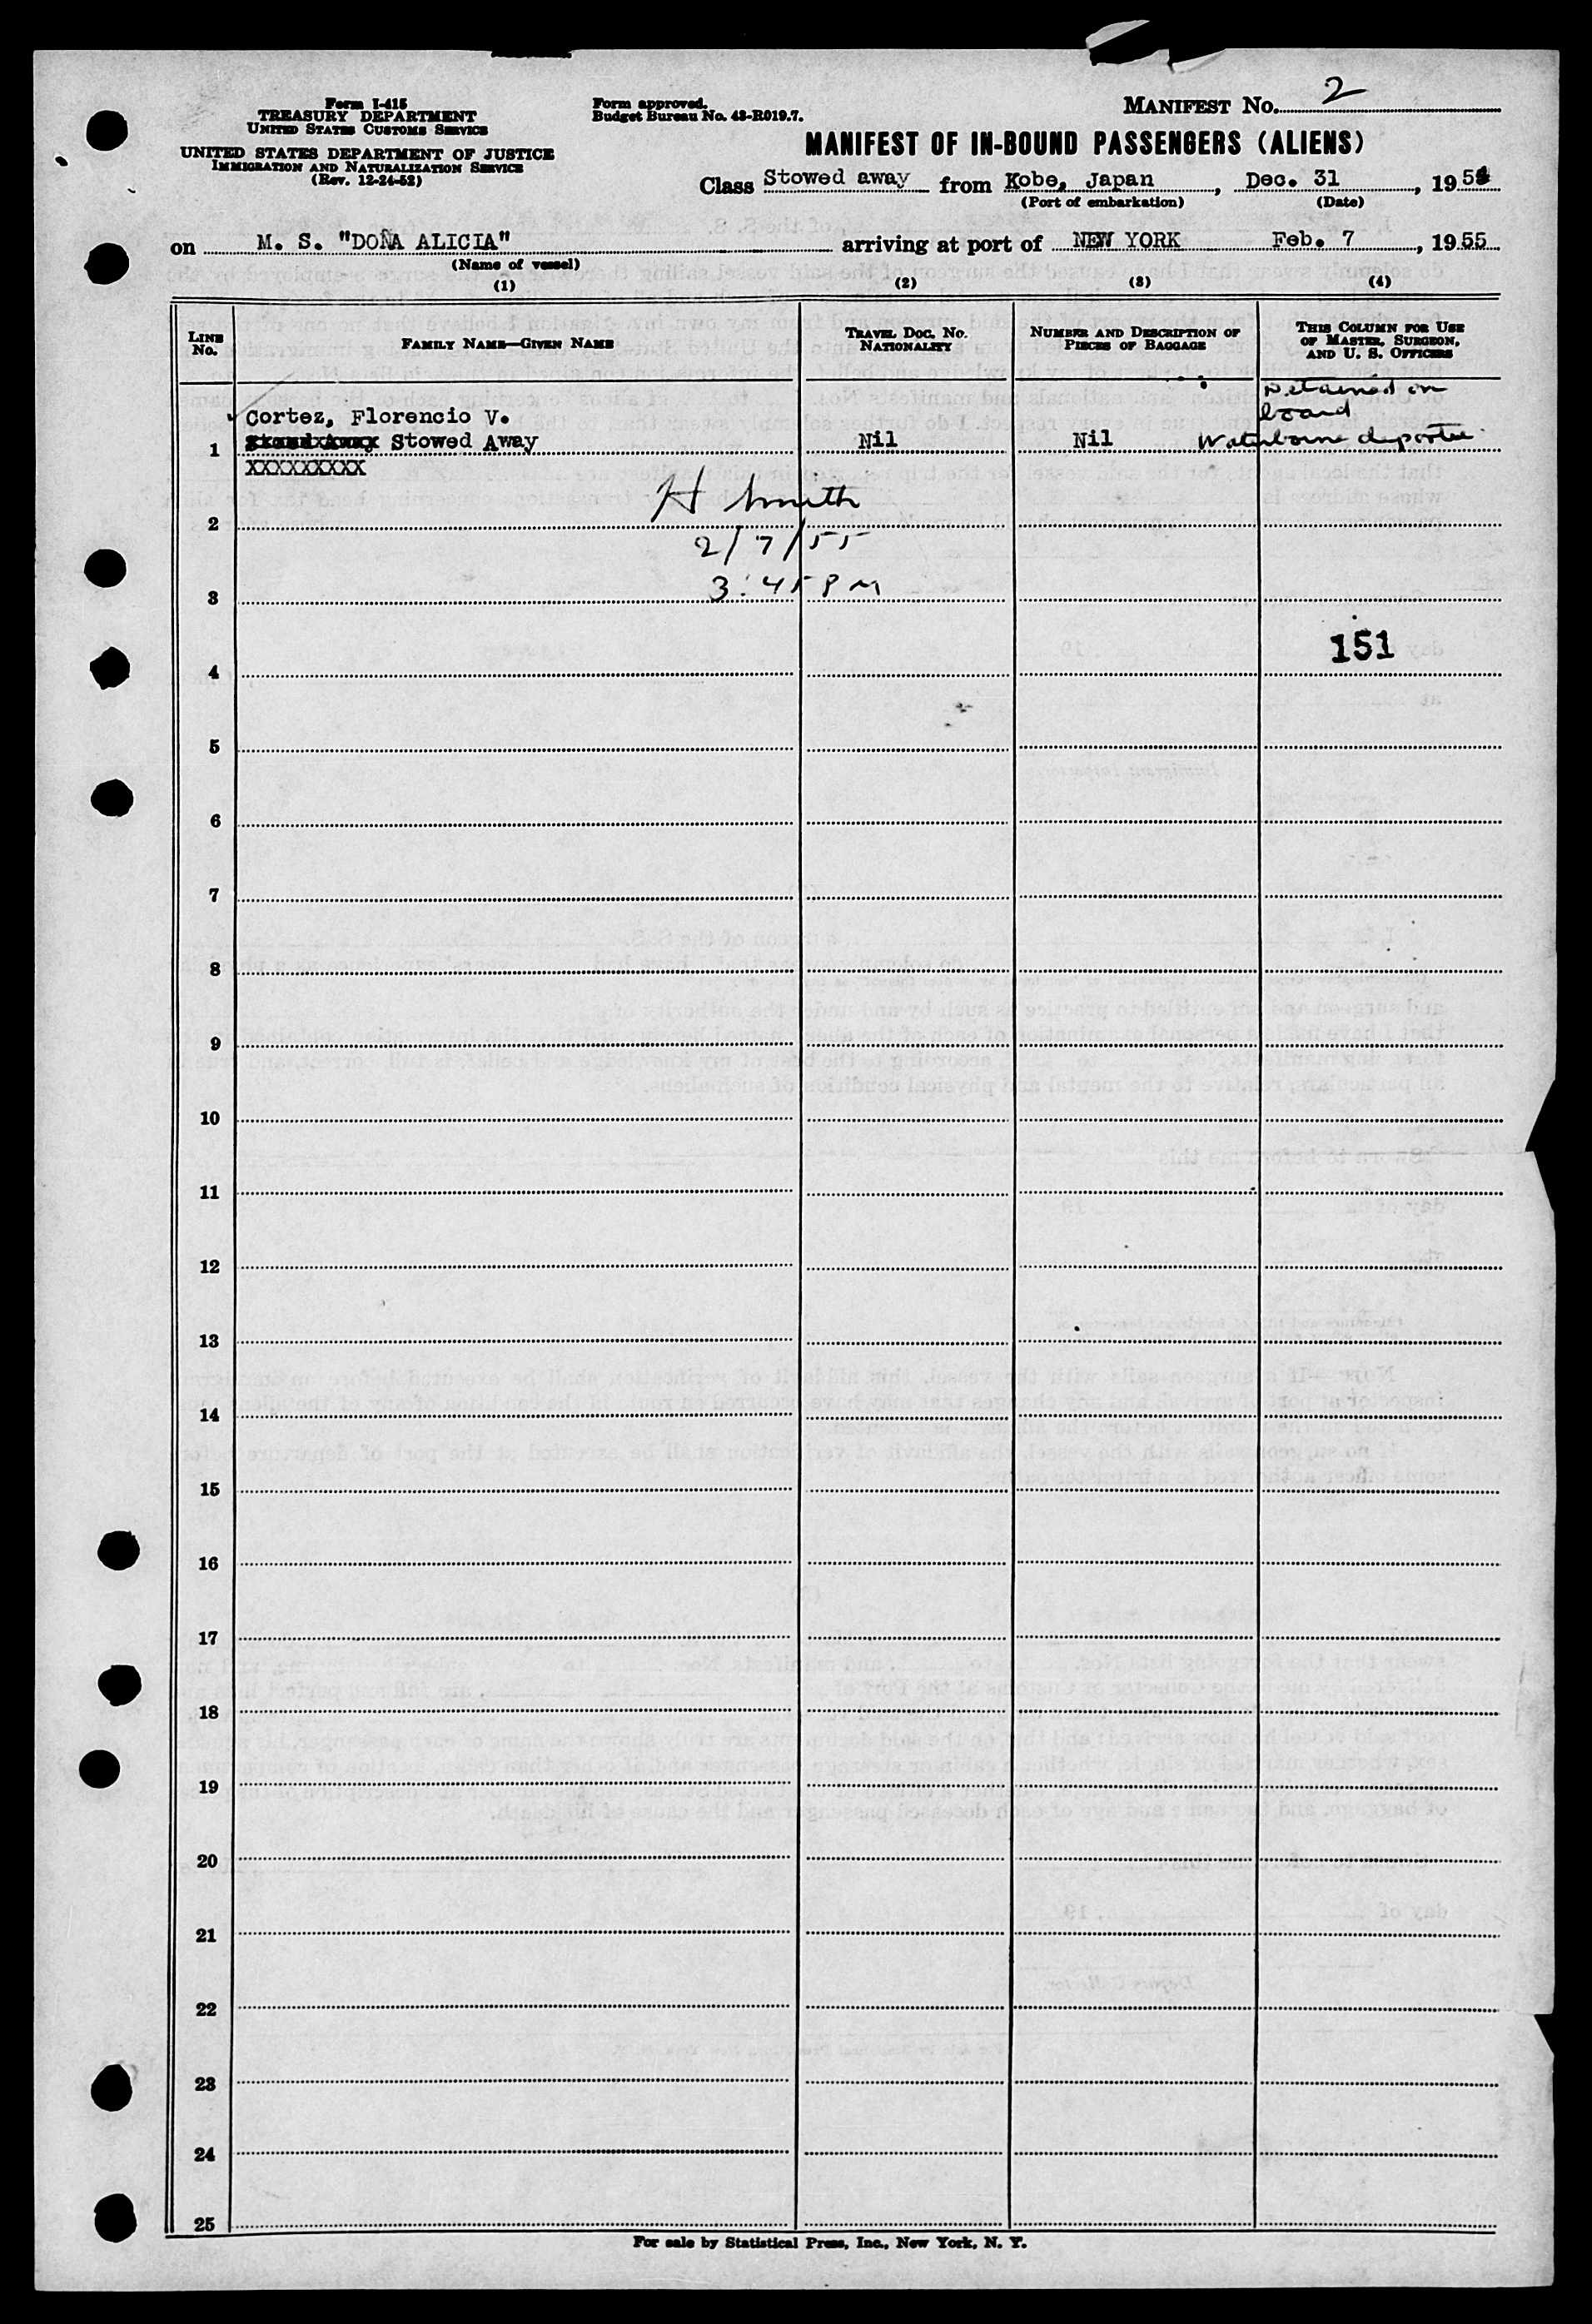 Form I-415
TREASURY DEPARTMENT
UNITED STATES CUSTOMS SERVICE
UNITED STATES DEPARTMENT OF JUSTICE
IMMIGRATION AND NATURALIZATION SERVICE
(Rev. 12-24-52)
Form approved.
Budget Bureau No. 43-R019.7.
MANIFEST No. 2
MANIFEST OF IN-BOUND PASSENGERS (ALIENS)
Class Stowed away from Kobe, Japan, Dec. 31, 1954
(Port of embarkation) (Date)
on M. S. "DOÑA ALICIA" arriving at port of NEW YORK Feb. 7, 1955
(Name of vessel)
(1) (2) (3) (4)
LINE No.
FAMILY NAME—GIVEN NAME
TRAVEL DOC. NO. NATIONALITY
NUMBER AND DESCRIPTION OF PIECES OF BAGGAGE
THIS COLUMN FOR USE OF MASTER, SURGEON, AND U. S. OFFICERS
Detained on
board
Cortez, Florencio V.
1 Stowed Away Nil Nil Waterborne deportee
XXXXXXXXX
H Smith
2
2/7/55
3:45 PM
3
151
4
5
6
7
8
9
10
11
12
13
14
15
16
17
18
19
20
21
22
23
24
25
For sale by Statistical Press, Inc., New York, N. Y.